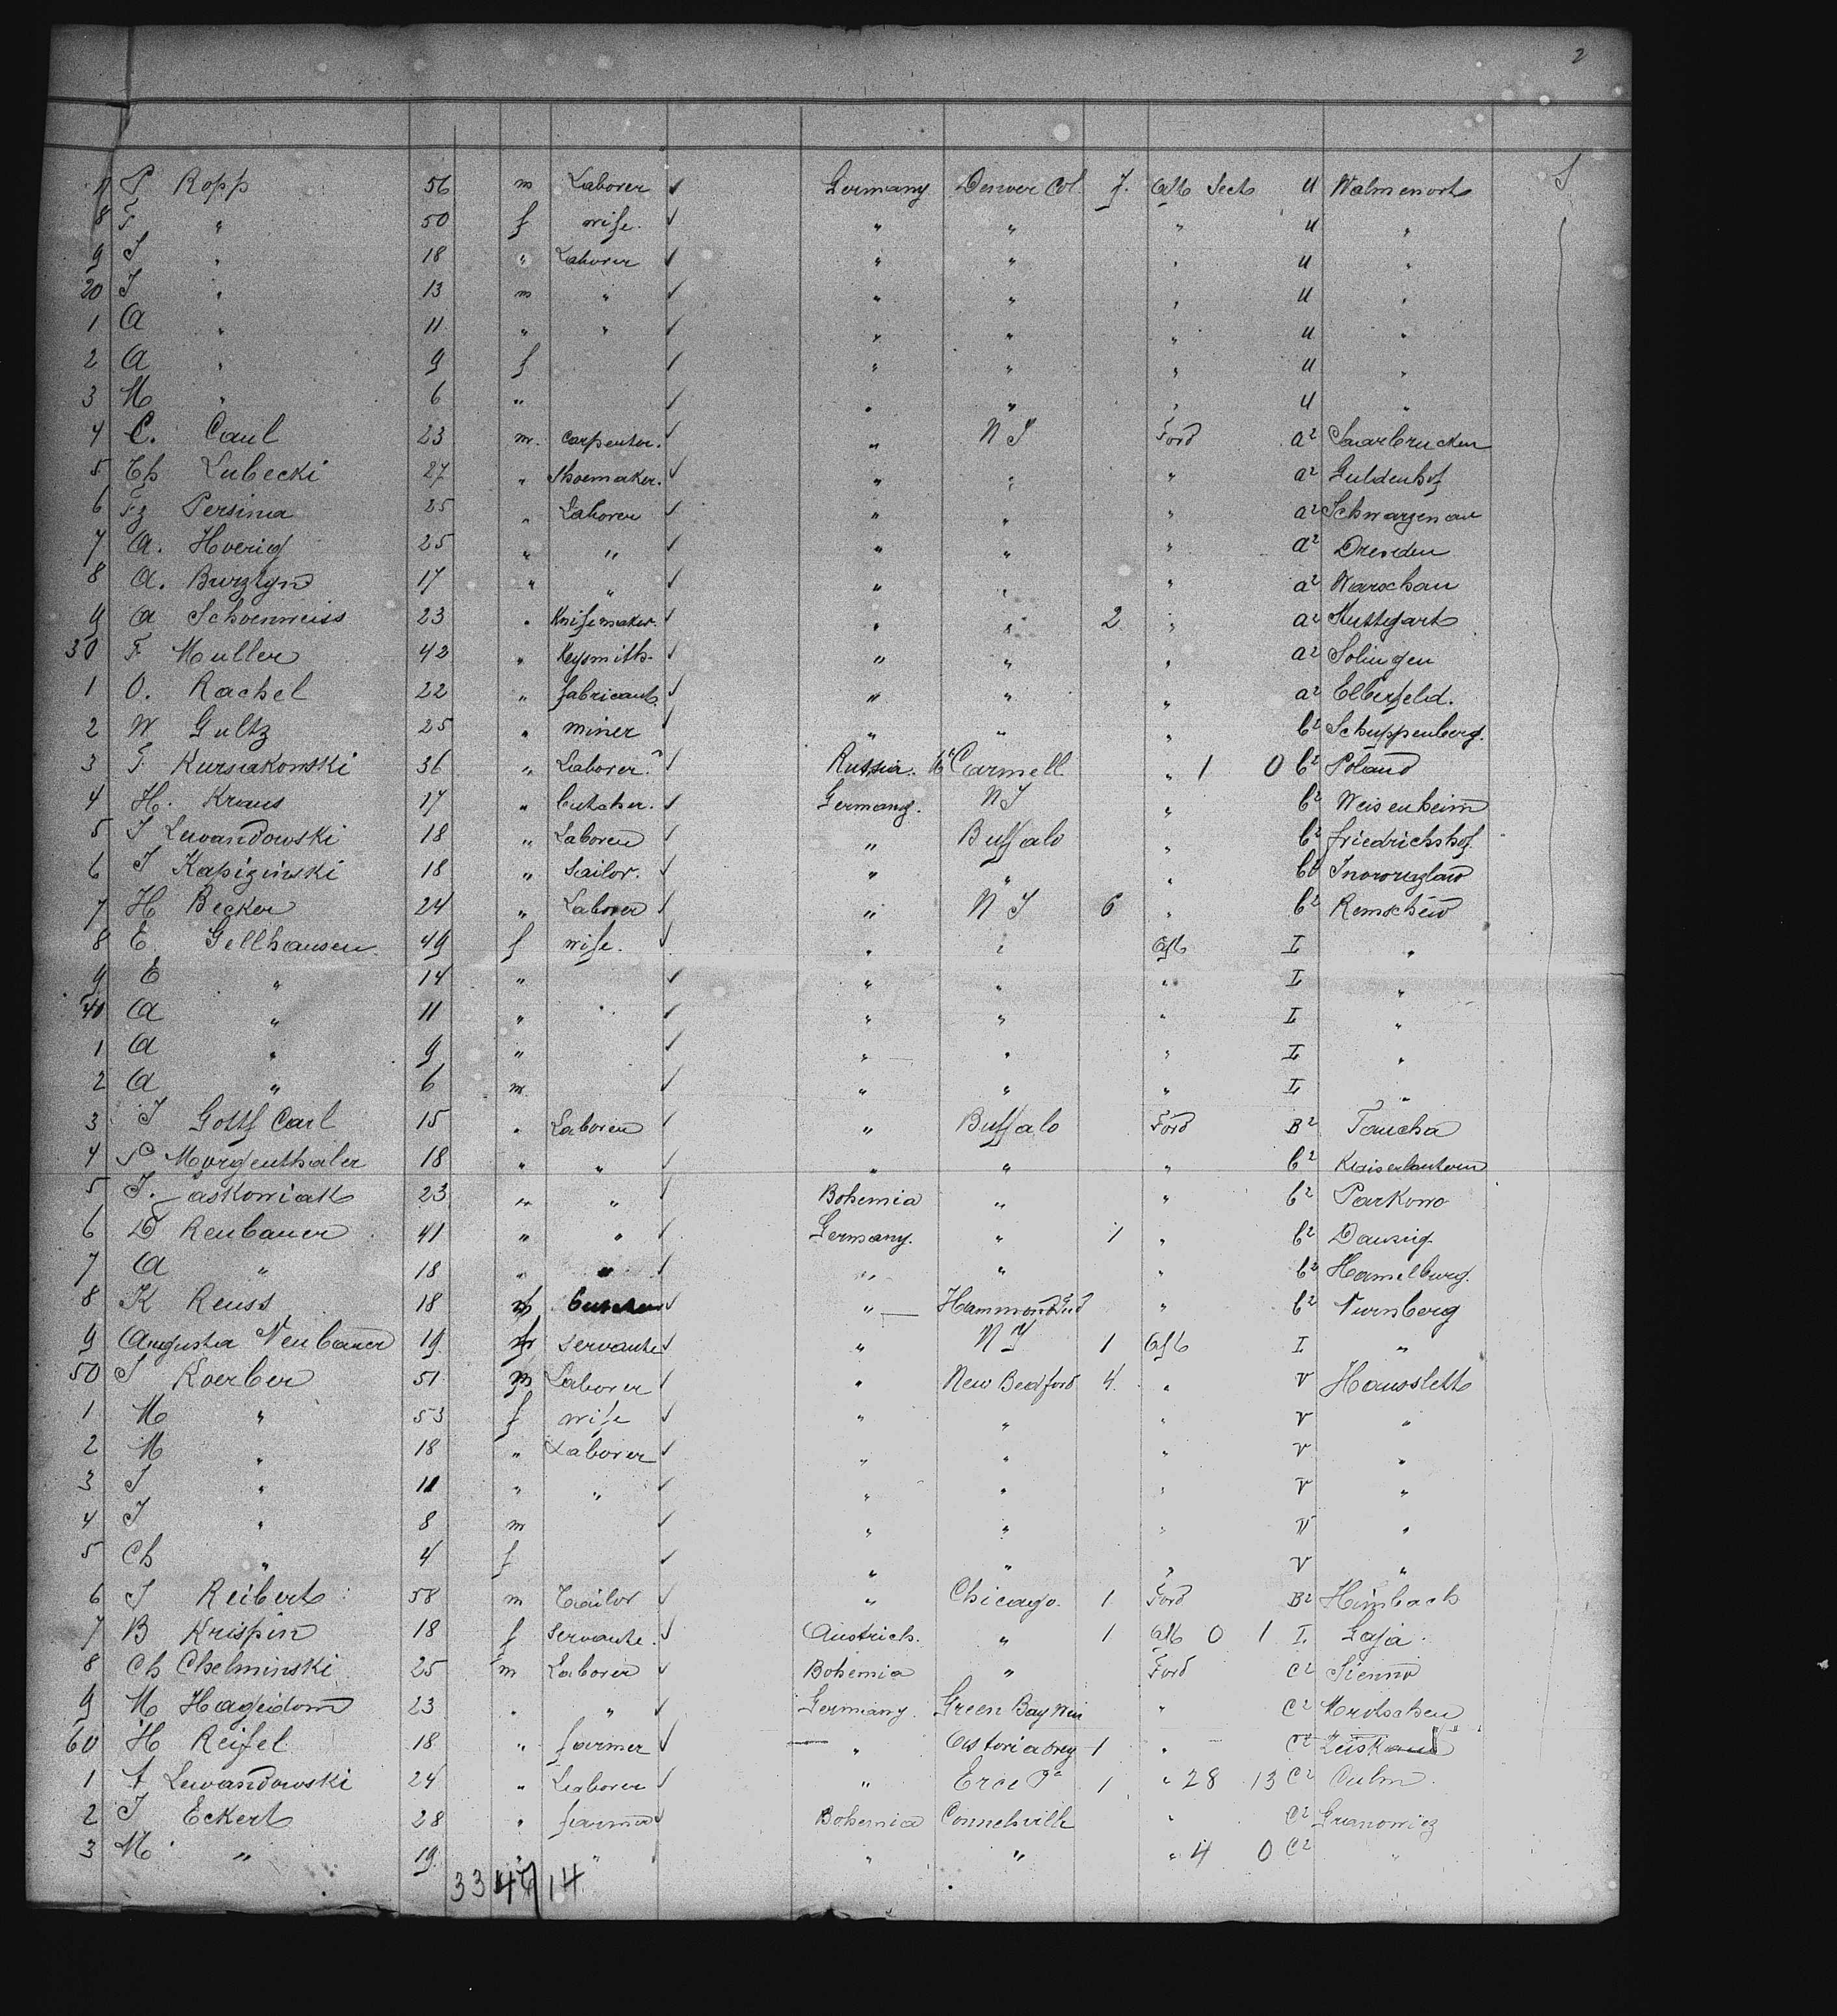 2
7 P Ropp 56 m Laborer ✓ Germany Denver Col. 7. Aft Sect U Walmenort S
8 F " 50 f wife. ✓ " " " U "
9 J " 18 " Laborer ✓ " " " U "
20 J " 13 m " ✓ " " " U "
1 A " 11 " " ✓ " " " U "
2 A " 9 f ✓ " " " U "
3 M " 6 " ✓ " " " U "
4 C. Caul 23 m. carpentor. ✓ " N Y Ford a2 Saarbrucken
5 Th Lubecki 27 " Shoemaker. ✓ " " " a2 Guldenhof
6 Fz Persina 25 " Laborer ✓ " " " a2 Schwarzenau
7 A. Hoerig 25 " " ✓ " " " a2 Dresden
8 A. Burztyn 17 " " ✓ " " " a2 Warschau
9 A Schoenweiss 23 " Knifemaker. ✓ " " 2 " a2 Stuttgart
30 F Muller 42 " Keysmith. ✓ " " " a2 Solingen
1 O. Rachel 22 " fabricant. ✓ " " " a2 Elberfeld.
2 W Gultz 25 " miner ✓ " " " b2 Schuppenberg.
3 F Kursakowski 36 " Laborer. ✓ Russia. Carmell " 1 0 b2 Poland
4 H. Kraus 17 " butcher. ✓ Germany. N Y " b2 Weisenheim
5 J Lewandowski 18 " Laborer ✓ " Buffalo " b2 friedrichshof.
6 J Kapiginski 18 " Sailor. ✓ " " " b2
7 H Becker 24 " Laborer ✓ " N Y 6 " b2 Remscheid
8 E Gellhausen 49 f wife. ✓ " " Aft I "
9 E " 14 " ✓ " " " I "
40 A " 11 " " ✓ " " " I "
1 A " 9 " ✓ " " " I "
2 A " 6 m ✓ " " " I "
3 J Gottf Carl 15 " Laborer ✓ " Buffalo Ford B2 Taucha
4 P Morgenthaler 18 " " ✓ " " " b2 Kaiserlautern
5 J. Jaskowiak 23 " " ✓ Bohemia " " b2 Parkowo
6 D Reubauer 41 " " ✓ Germany. " 1 " b2 Danzig
7 A " 18 " " ✓ " " " b2 Hamelburg.
8 K Reuss 18 ✓ " Hammond Ind " b2 Nurnberg
9 Augusta Neubauer 19 f servante ✓ " N Y 1 Aft I "
50 J Koerber 51 m Laborer ✓ " New Bedford 4 " V Hausslett
1 M " 53 f wife ✓ " " " V "
2 M " 18 " Laborer ✓ " " " V "
3 J " 11 " " ✓ " " " V "
4 J " 8 m ✓ " " " V "
5 Ch " 4 f ✓ " " " V "
6 J Reibert 58 m Tailor ✓ " Chicago. 1 Ford B2 Himbach
7 B Krispin 18 f Servante. ✓ Austrich. " 1 Aft 0 1 I Gaja.
8 Ch Chelminski 25 m Laborer ✓ Bohemia " Ford C2 Sienno
9 M Hagedorn 23 " " ✓ Germany. Green Bay Wis " C2 Mrotschen
60 H Reifel 18 " farmer ✓ " Astoria Oreg 1 " C2
1 A Lewandowski 24 " Laborer ✓ " Erie Pa 1 " 28 13 C2 Culm.
2 J Eckert 28 " farmer ✓ Bohemia Connelsville " C2 Granowicz
3 M " 19 " " ✓ " " " 4 0 C2 "
33 47 14